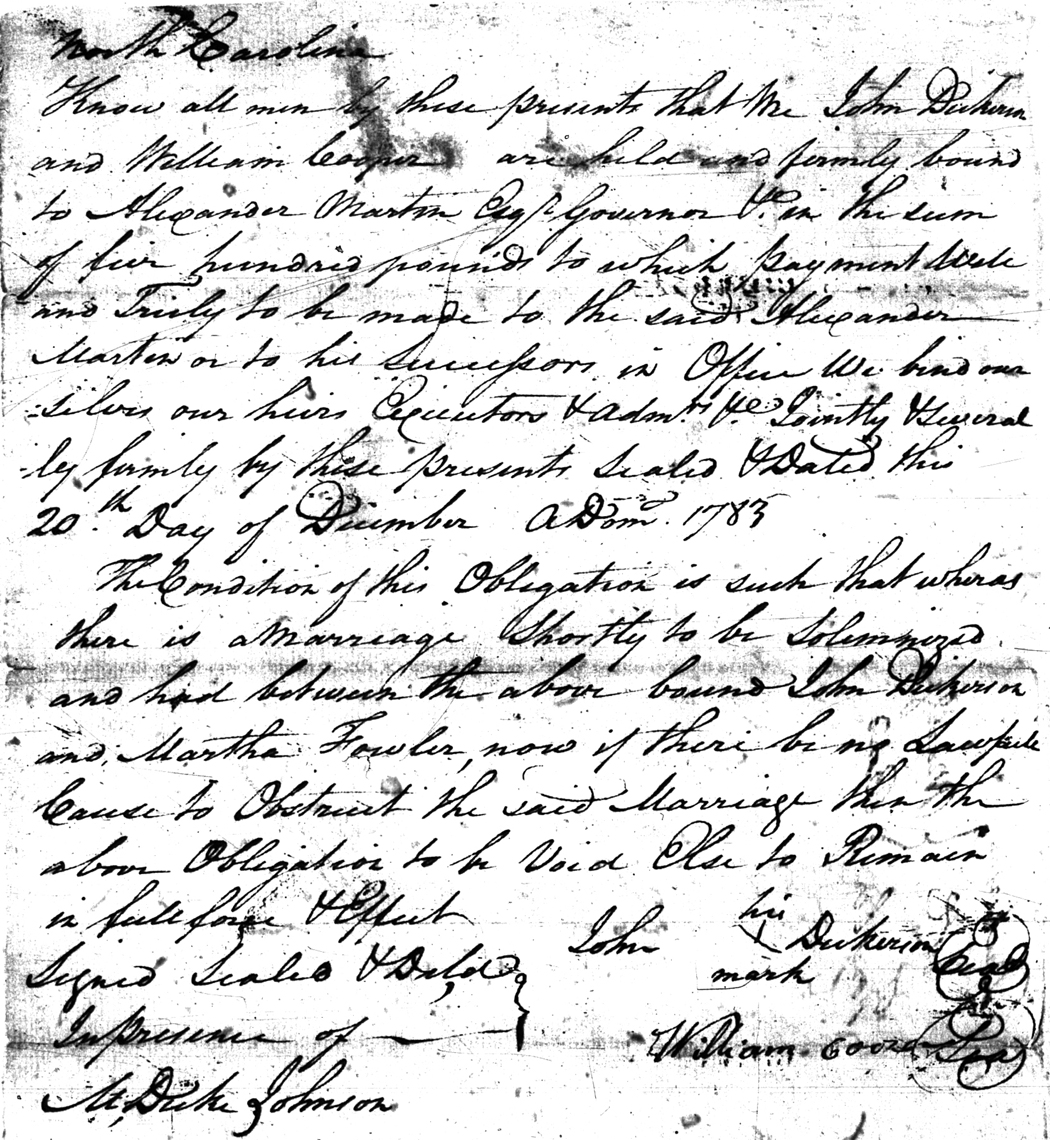 North Carolina
Know all men by these presents that We John Dickerson
and William Cooper are held and firmly bound
to Alexander Martin Esqr. Governor &c. in the sum
of five hundred pounds to which payment Well
and Truly to be made to the said Alexander
Martin or to his Successors in Office We bind our
-selves our heirs Executors & Admrs. &c. Jointly & Several
-ly firmly by these presents Sealed & Dated this
20.th Day of December A Dom. 1783
The Condition of this Obligation is such that wheras
there is a Marriage Shortly to be Solemnized
and had between the above bound John Dickerson
and Martha Fowler, now if there be no Lawfull
Cause to Obstruct the said Marriage then the
above Obligation to be Void Else to Remain
in full force & Effect
his
John Dickerson Seal
mark
Signed Sealed & Deld,
In presence of
William Cooper Seal
M, Duke Johnson